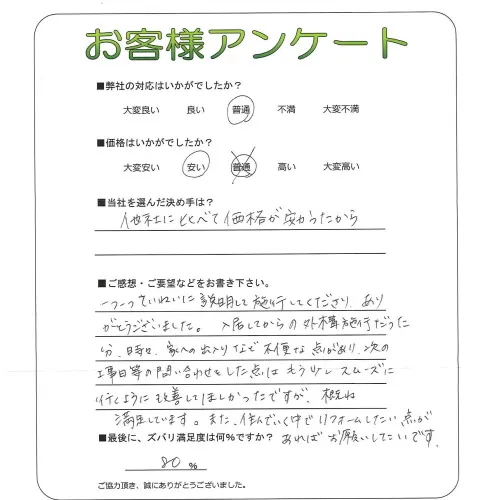 お客様アンケート
■弊社の対応はいかがでしたか?
大変良い 良い 普通 不満 大変不満
■価格はいかがでしたか?
大変安い 安い 普通 高い 大変高い
■当社を選んだ決め手は?
他社に比べて価格が安かったから
■ご感想・ご要望などをお書き下さい。
一つ一つていねいに説明して施行してくださり、あり
がとうございました。入居してからの外構施行だった
分、日時や、家への出入りなど不便な点があり、次の
工事日等の問い合わせをした点はもう少しスムーズに
行くように改善してほしかったですが、概ね
満足しています。また、住んでいく中でリフォームしたい点が
■最後に、ズバリ満足度は何%ですか? あればお願いしたいです。
80 %
ご協力頂き、誠にありがとうございました。